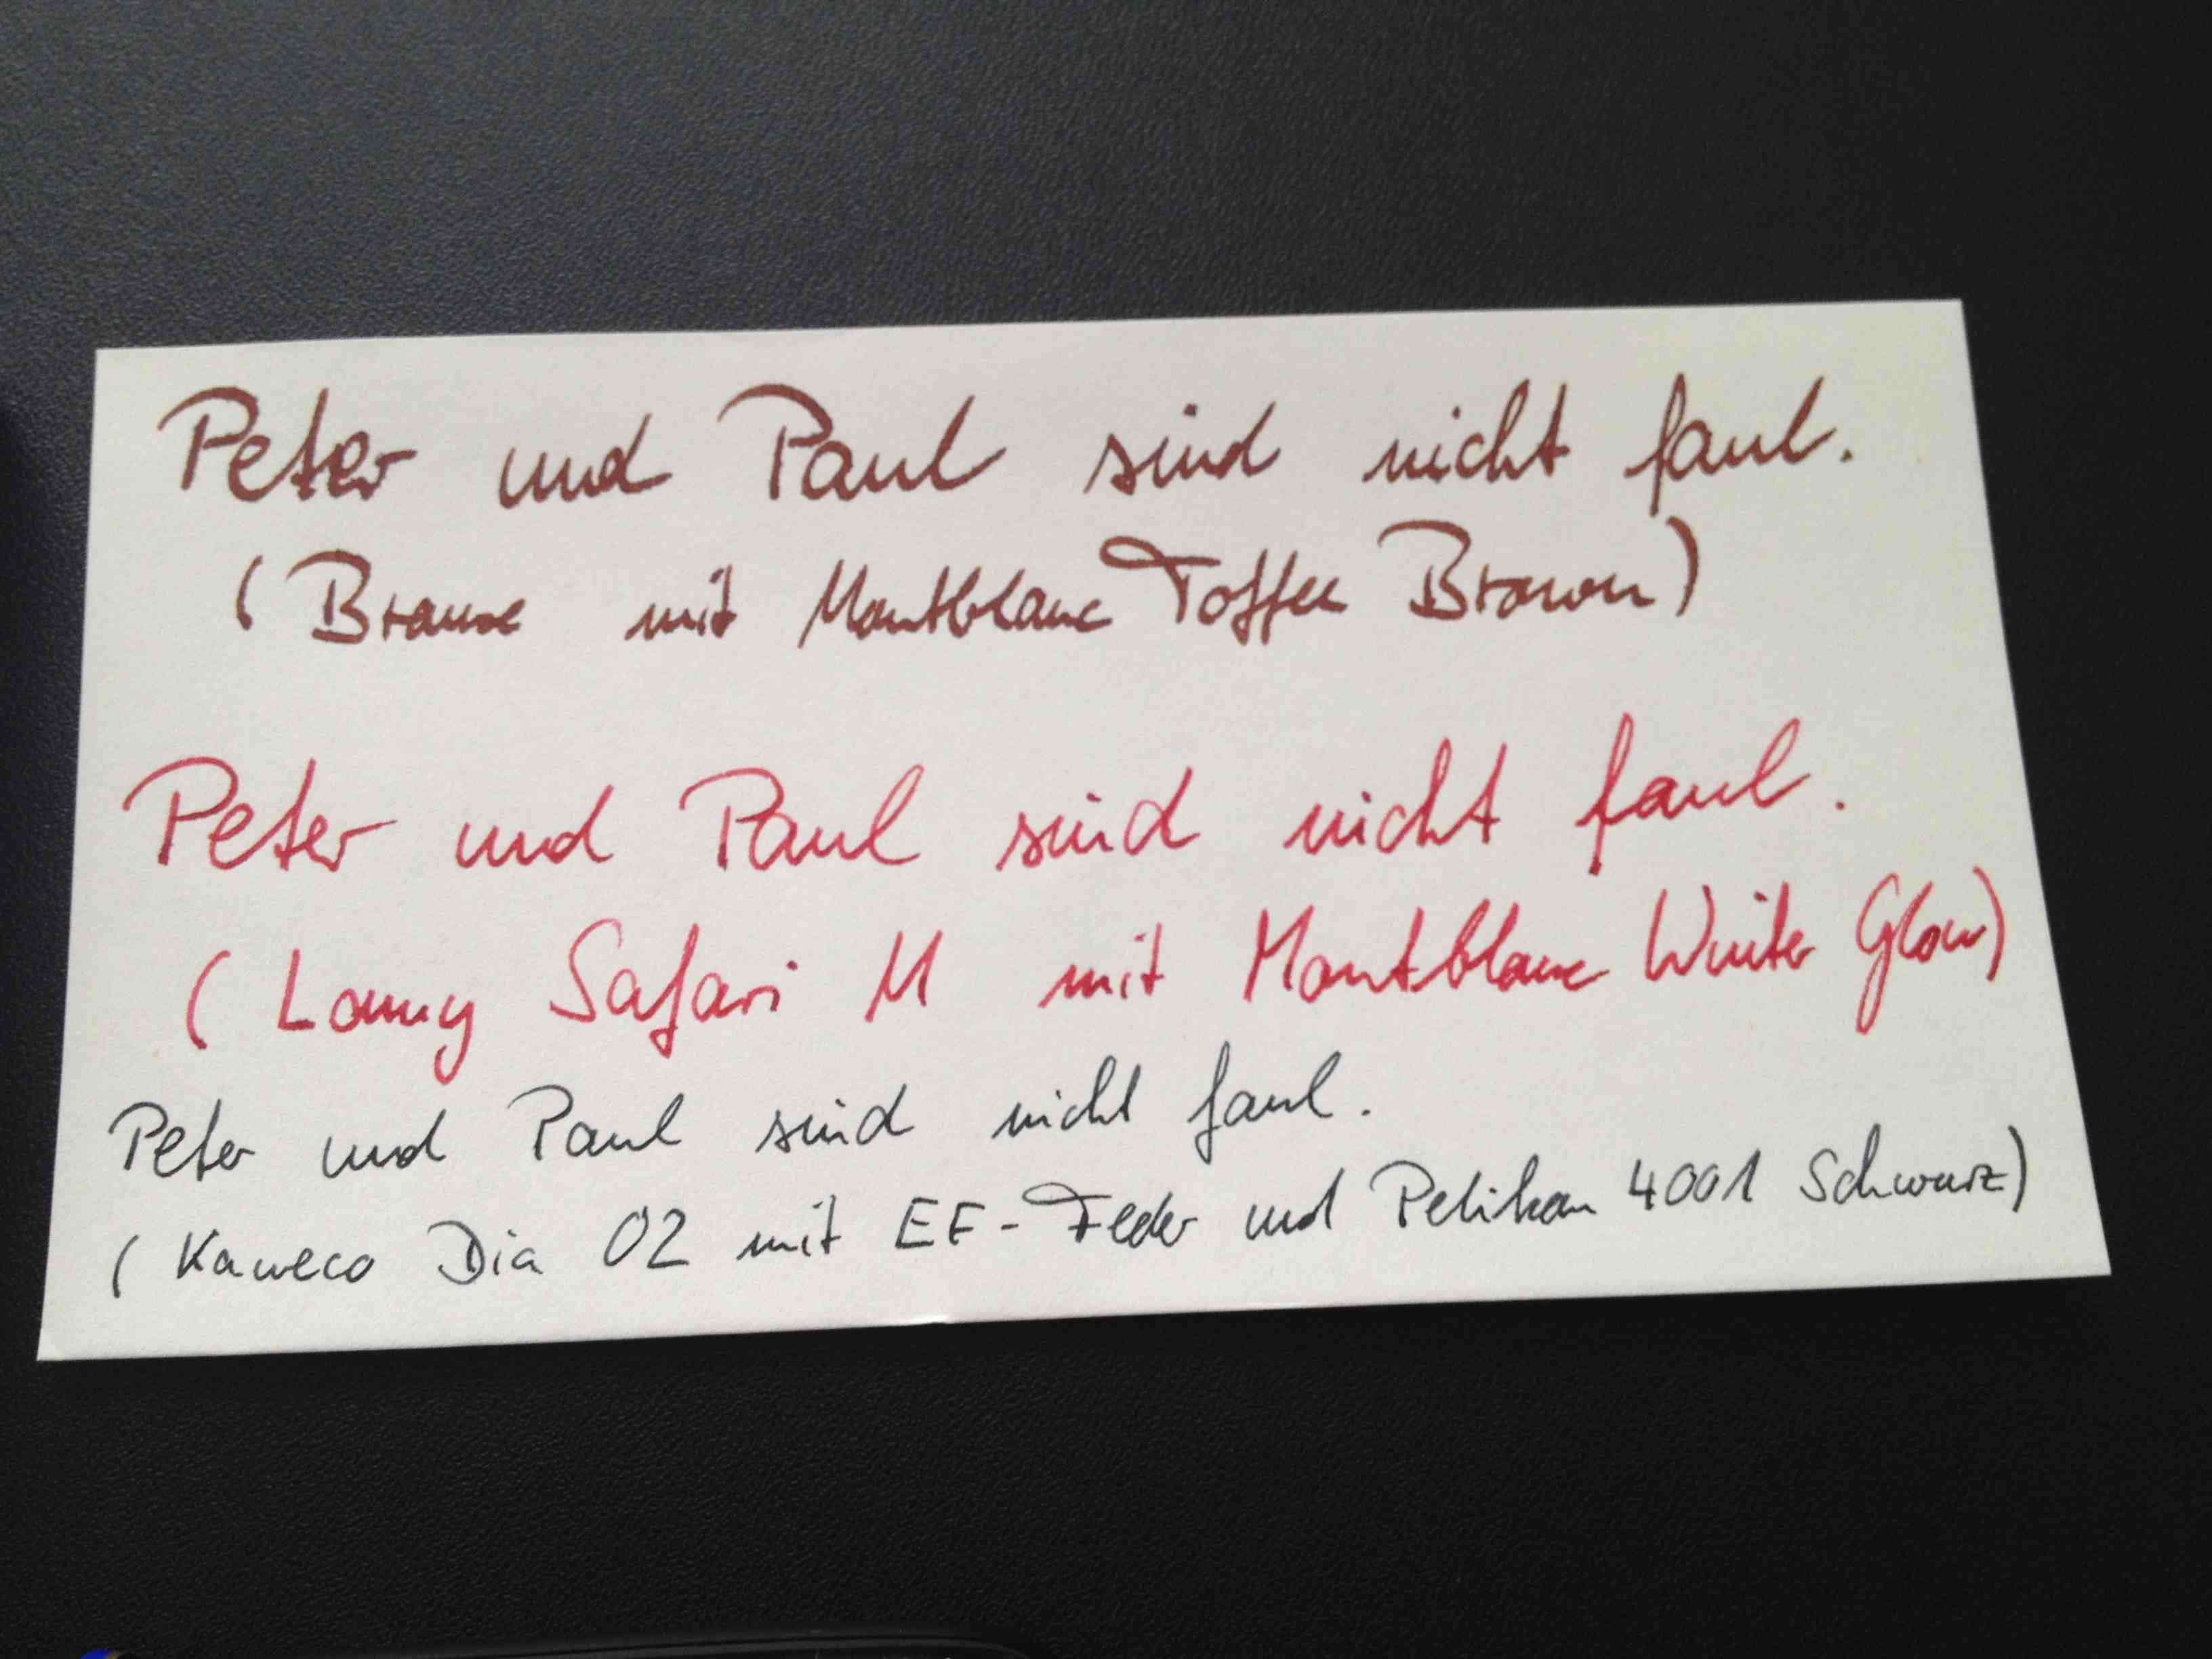 Peter und Paul sind nicht faul.
(Brause mit Montblanc Toffee Brown)
Peter und Paul sind nicht faul.
(Lamy Safari M mit Montblanc Winter Glow)
Peter und Paul sind nicht faul.
(Kaweco Dia 02 mit EF-Feder und Pelikan 4001 Schwarz)